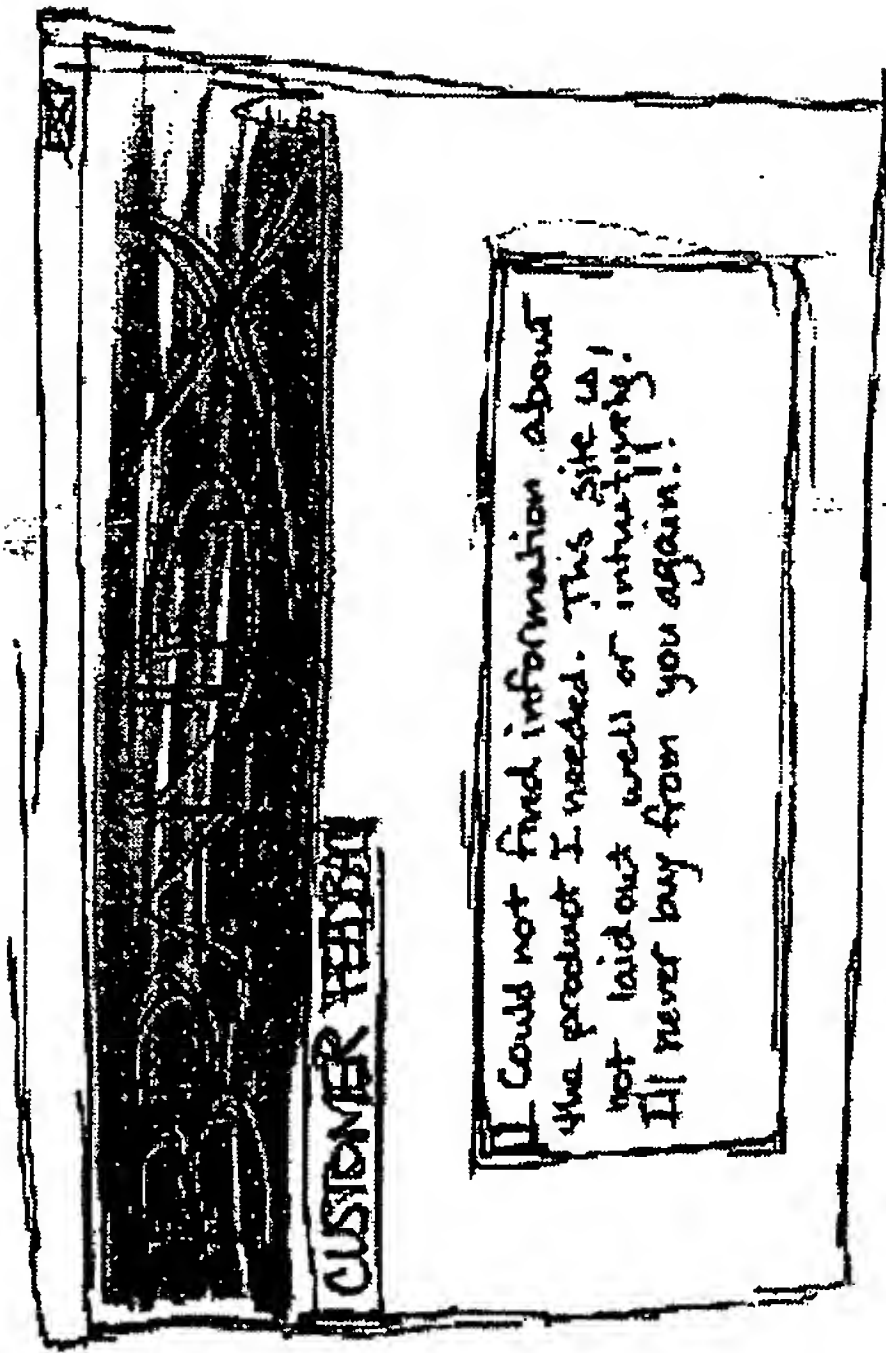 CUSTOMER FEEDBACK
I Could not find information about
the product I needed. This site is
not laid out well or intuitively.
I'll never buy from you again!